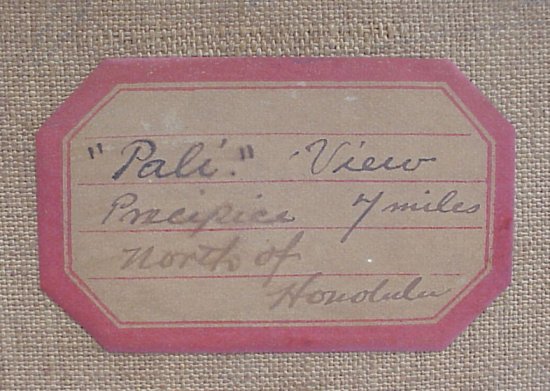 "Pali." View
Precipice 7 miles
North of
Honolulu